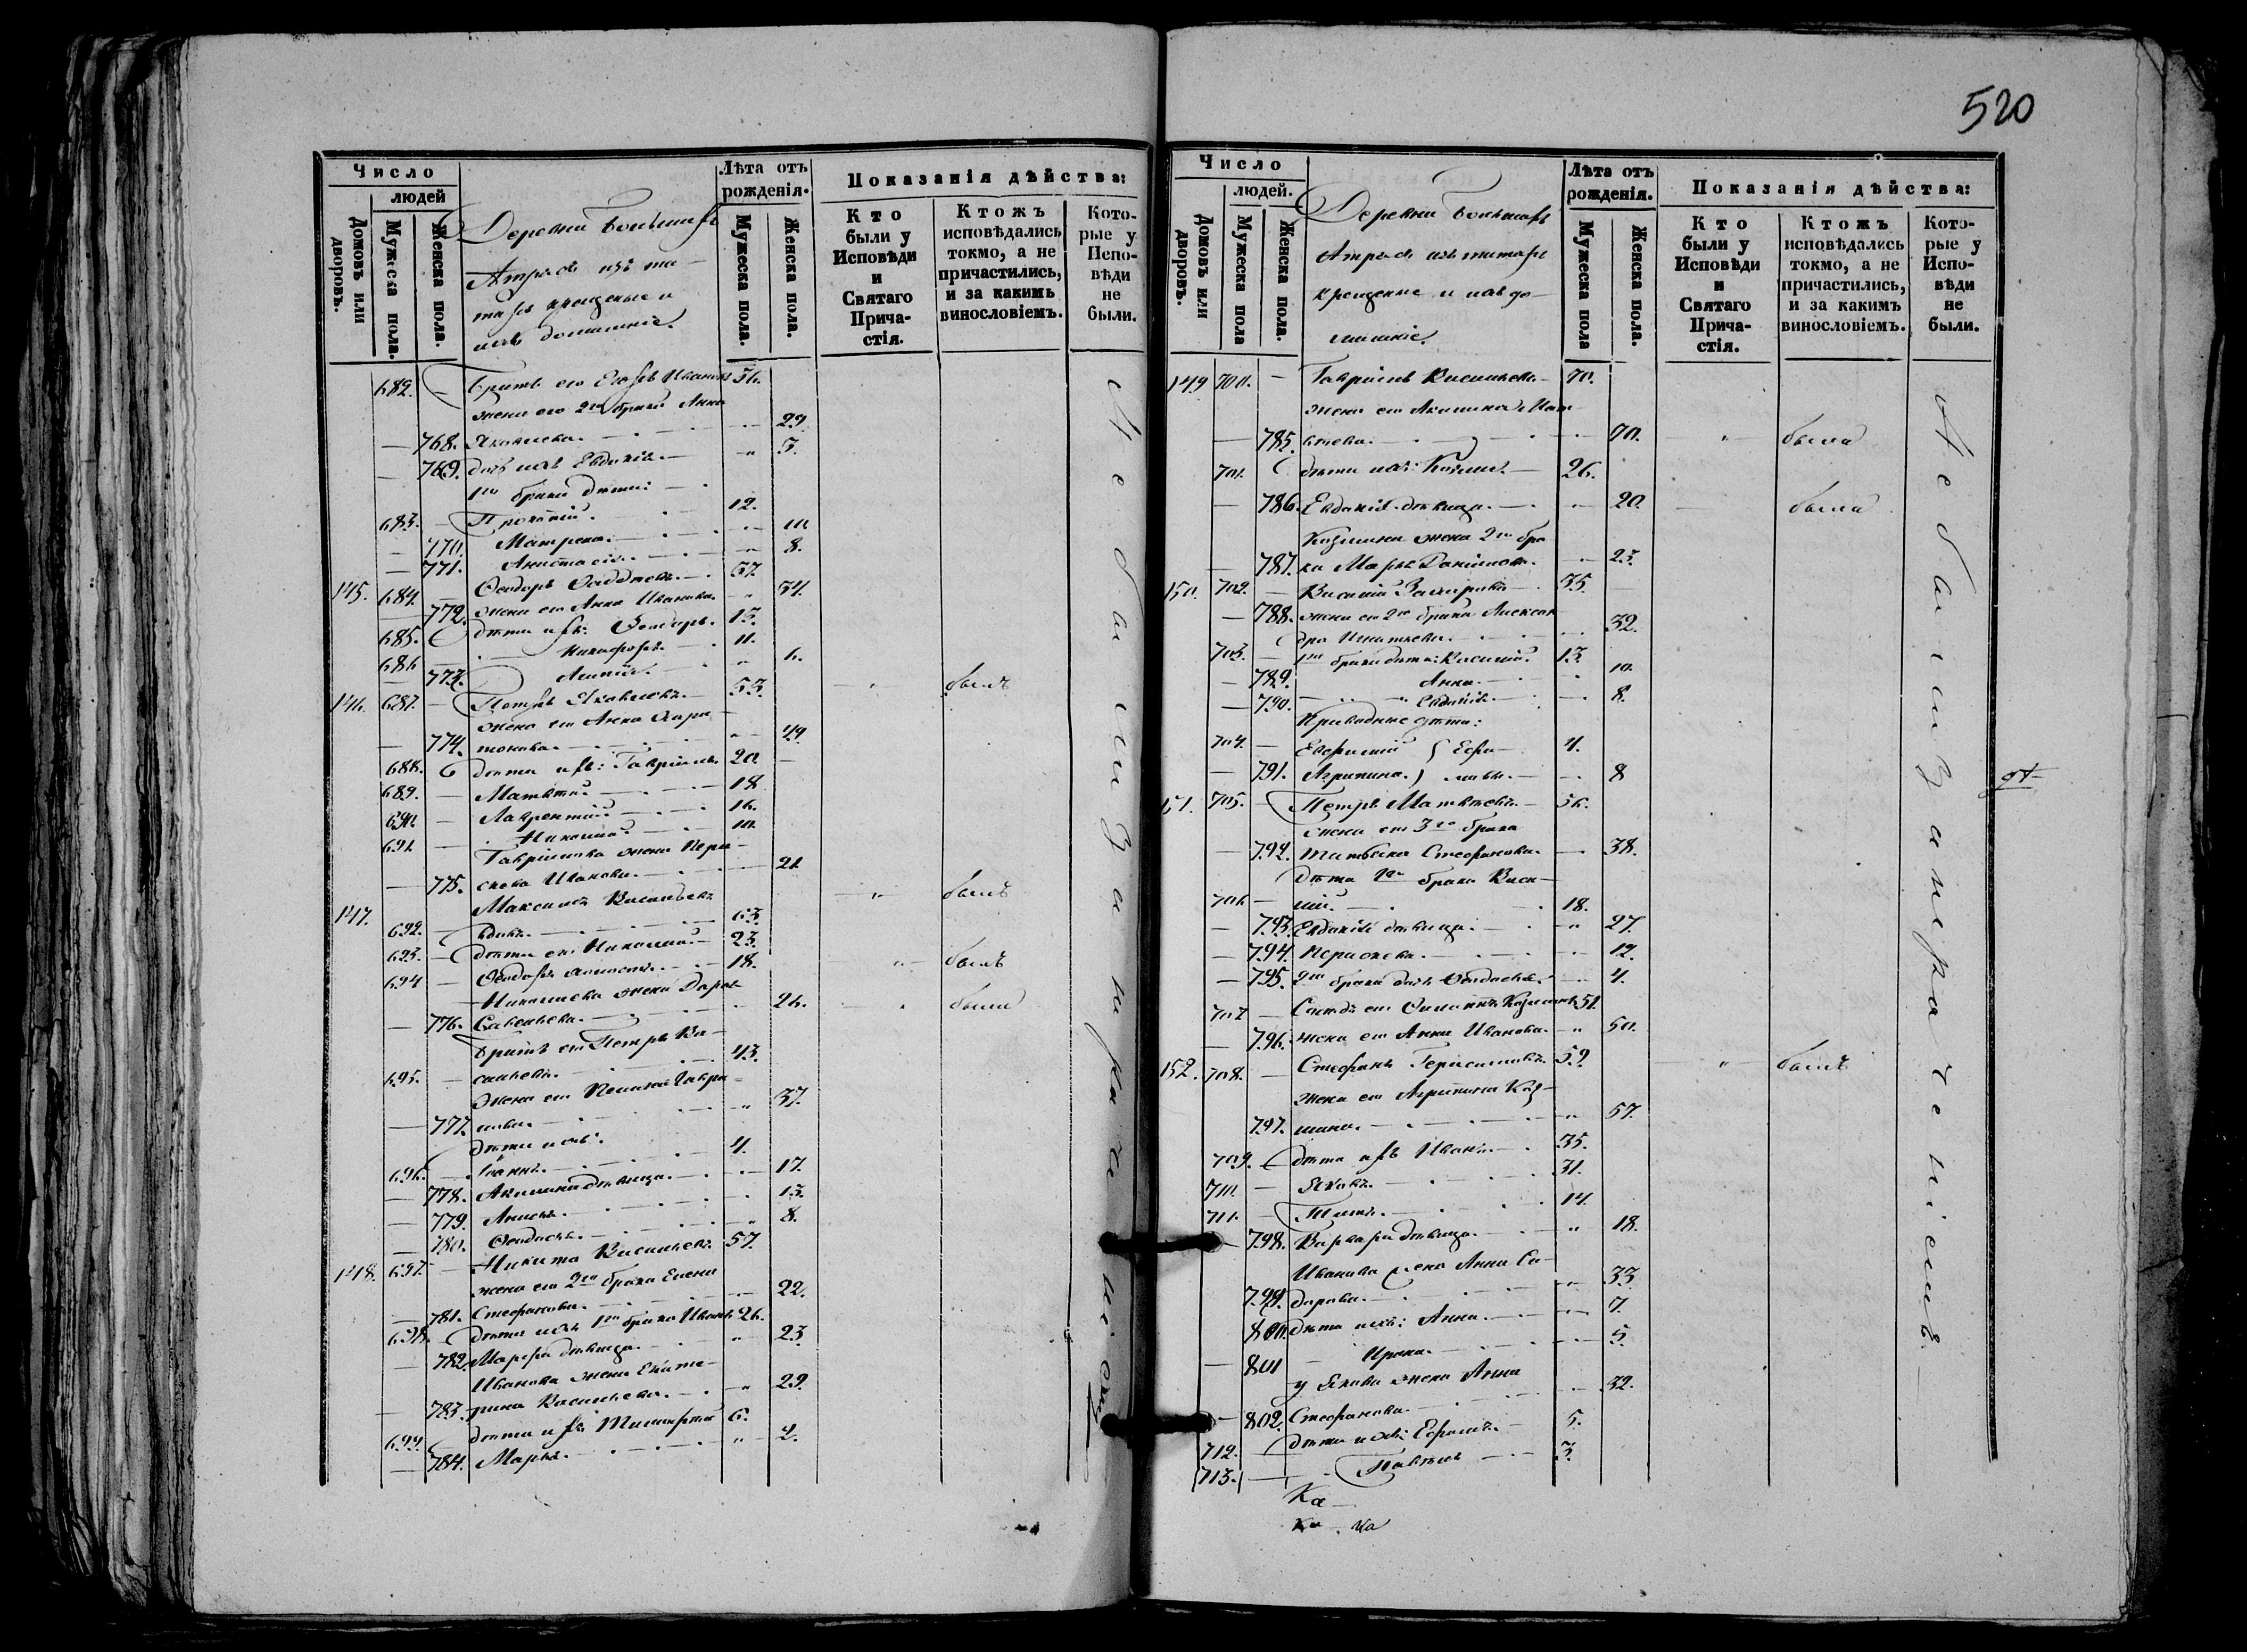 Число
людей
Домовъ или дворовъ.
Мужеска пола.
Женска пола.
Деревни Большихъ
Атрясъ изъ та-
таръ крещеные и
ихъ домашніе.
Лѣта отъ рожденія.
Мужеска пола.
Женска пола.
Показанія дѣйства:
Кто были у Исповѣди и Святаго Причастія.
Ктожъ исповѣдались токмо, а не причастились, и за какимъ винословіемъ.
Которые у Исповѣди не были.
682. — Братъ его Егоръ Ивановъ 36.
жена его 2го брака Анна
— 768. Яковлева. — 29.
— 769. дочь ихъ Евдокія. — " 3.
1го брака дѣти:
683. — Прокопій. 12.
— 770. Матрена. — 10.
— 771. Анастасія. — " 8.
145. 684. — Ѳеодоръ Ѳаддеевъ. 37.
— 772. жена его Анна Иванова. " 34.
685. дѣти ихъ: Ѳеодоръ. 13.
686 — Никифоръ. 11.
— 773. " 6.
146. 687. — Петръ Яковлевъ. 53. — " — былъ
жена его Анна Хари-
— 774. тонова. — 49
688. дѣти ихъ: Гавріилъ 20. —
689. — Матвѣй. — 18
690. — Лаврентій. 16.
691. — Николай. 10.
Гавріилова жена Пара-
— 775. скева Иванова. — 21
147. Максимъ Васильевъ — " — былъ
692. — вдовъ. — 63
693. — дѣти его Николай. — 23.
694 — Ѳеодоръ холостъ. — 18. " — былъ
Николаева жена Дарья
— 776. Савельева. — 26. — " была
Братъ его Петръ Ва-
695. — сильевъ. — 43.
Жена его Пелагея Гаври-
— 777. лова. — " 37.
дѣти ихъ:
696. — Іоаннъ. 4.
— 778. Акилина дѣвица. — 17.
— 779. Анисья. 13.
— 780. Ѳеодосья. — " 8.
148. 697. — Никита Васильевъ 57.
жена его 2го брака Елена
— 781. Стефанова. — 22.
698. дѣти ихъ 1го брака Иванъ 26.
— 782. Марфа дѣвица. " 23
Иванова жена Екате-
— 783. рина Васильева. — " 29.
699. дѣти ихъ: 6.
— 784. Марья. — " 2.
Не бы ли за нерачениемъ
520
Число
людей.
Домовъ или дворовъ.
Мужеска пола
Женска пола.
Деревни Большихъ
Атрясъ изъ татаръ
крещенные и ихъ до-
машніе.
Лѣта отъ рожденія.
Мужеска пола
Женска пола.
Показанія дѣйства:
Кто были у Исповѣди и Святаго Причастія.
Ктожъ исповѣдались токмо, а не причастились, и за какимъ винословіемъ.
Которые у Исповѣди не были.
149 700. — Гавріилъ Васильевъ — 70.
жена его Акилина Мат-
— 785. вѣева. — 70. " была
701. дѣти ихъ: Козма. — 26.
— 786. Евдокія дѣвица. — 20. — была
Козмина жена 2го бра-
— 787. ка Марья Данилова. — 23.
150. 702. — Василій Захаровъ — 35.
— 788. жена его 2го брака Алексан-
дра Игнатьева. — 32.
703. — 1го брака дѣти: Василій. 13.
— 789. Анна. — 10.
— 790. — " Евдокія. — 8.
Приводные дѣти:
704. — Евфимій } Ефи- 4.
— 791. Агрипина. } мовы. — 8
151. 705. — Петръ Матвѣевъ. 56.
жена его 3го брака
— 792. Татьяна Стефанова. — 38.
Дѣти 1го брака Васи-
706 — лій. — 18.
— 793. Евдокія дѣвица. — " 27.
— 794. Парасковья. — 12.
— 795. 2го брака дочь Ѳеодосья. — 4.
707 — 51.
— 796. жена его Анна Иванова. — " 50.
152. 708. — Стефанъ Герасимовъ. 59 " былъ
Жена его Агрипина Коз-
797. мина. — " 57.
709. — дѣти ихъ Иванъ. — 35.
710 — Яковъ. — 31.
711. — Титъ. 14.
798. Варвара дѣвица. — " 18.
Иванова жена Анна Си-
799. дорова. — " 33.
800. дѣти ихъ: Анна. — 7.
— 801 — Ирина. — 5.
у Якова жена Анна
— 802. Стефанова. — 32.
712. дѣти ихъ: Ефремъ. 5.
713. — Павелъ — 3.
Не бы ли за нерачениемъ
Ка-